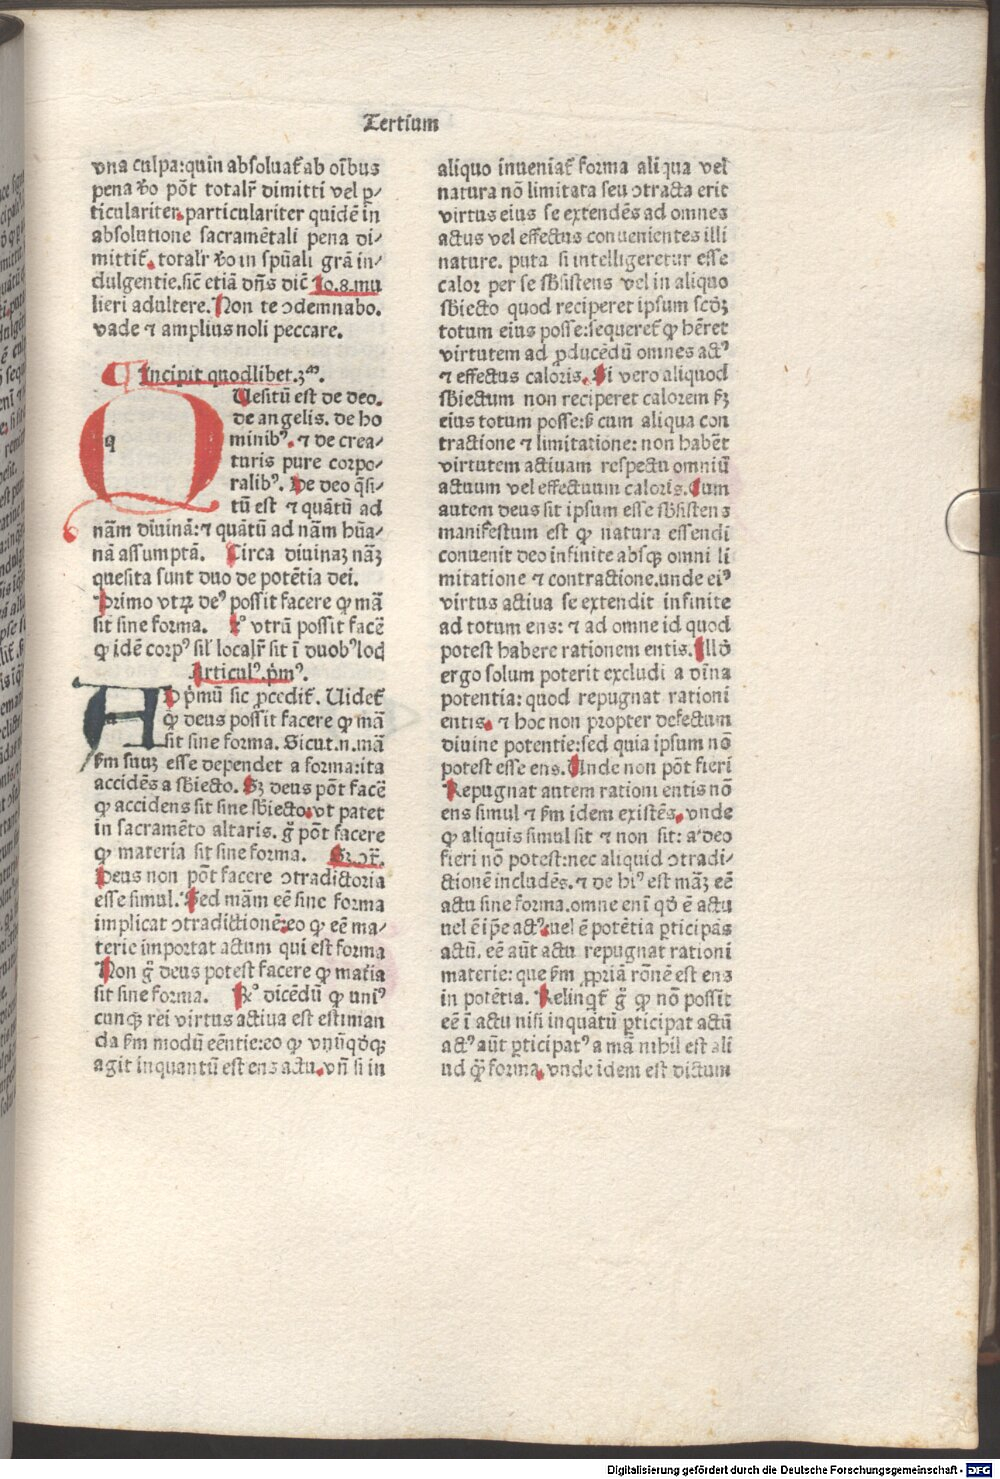 Tertium
vna culpa:quin absoluat̃ ab oĩbus
pena ṽo põt totalr̃ dimitti vel p̱/
ticulariter.particulariter quidẽ in
absolutione sacramẽtali pena di/
mittit̃.totalr̃ ṽo in spũali grã in/
dulgentie.sic̃ etiã dñs dic̃ Jo.8.mu
lieri adultere.Non te ↄdemnabo.
vade ⁊ amplius noli peccare.
¶ Incipit quodlibet.3ᵐ.
QUesitũ est de deo.
q
de angelis. de ho
minibꝰ. ⁊ de crea/
turis pure corpo/
ralibꝰ. De deo q̃si/
tũ est ⁊ quãtũ ad
nãm diuinã:⁊ quãtũ ad nãm hũa/
nã assumptã. Circa diuinaꝫ nãꝫ
quesita sunt duo de potẽtia dei.
Primo vtꝝ deꝰ possit facere ꝙ mã
sit sine forma. xꝰ vtrũ possit facẽ
ꝙ idẽ corpꝰ sil̃ localr̃ sit ĩ duobꝰ loc̃
Articulꝰ.p̃mꝰ.
AD p̃mũ sic ꝓcedit̃. Uidet̃
ꝙ deus possit facere ꝙ mã
sit sine forma. Sicut.n.mã
ẞm suuꝫ esse dependet a forma:ita
accidẽs a sb̃iecto. Sꝫ deus põt facẽ
ꝙ accidens sit sine sb̃iecto.vt patet
in sacramẽto altaris. g̃ põt facere
ꝙ materia sit sine forma. Sꝫ.ↄt̃.
Deus non põt facere ↄtradictoria
esse simul. Sed mãm eẽ sine forma
implicat ↄtradictionẽ:eo ꝙ eẽ ma/
terie importat actum qui est forma
Non g̃ deus potest facere ꝙ matia
sit sine forma. Rꝰ dicẽdũ ꝙ uniꝰ
cunqꝫ rei virtus actiua est estiman
da ẞm modũ eẽntie:eo ꝙ vnũqd̃qꝫ
agit inquantũ est ens actu.vñ si in
aliquo inueniat̃ forma aliqua vel
natura nõ limitata seu ↄtracta erit
virtus eius se extendẽs ad omnes
actus vel effectus conuenientes illi
nature. puta si intelligeretur esse
calor per se sb̃sistens vel in aliquo
sb̃iecto quod reciperet ipsum scd̃ꝫ
totum eius posse:sequeret̃ ꝙ hẽret
virtutem ad ꝓducẽdũ omnes actꝰ
⁊ effectus caloris. Si vero aliquod
sb̃iectum non reciperet calorem ẞꝫ
eius totum posse:ẞ cum aliqua con
tractione ⁊ limitatione: non habẽt
virtutem actiuam respectu omniũ
actuum vel effectuum caloris. Cum
autem deus sit ipsum esse sb̃sistens
manifestum est ꝙ natura essendi
conuenit deo infinite absqꝫ omni li
mitatione ⁊ contractione.unde eiꝰ
virtus actiua se extendit infinite
ad totum ens: ⁊ ad omne id quod
potest habere rationem entis. Illd̃
ergo solum poterit excludi a diĩna
potentia: quod repugnat rationi
entis. ⁊ hoc non propter defectum
diuine potentie:sed quia ipsum nõ
potest esse ens. Unde non põt fieri
Repugnat autem rationi entis nõ
ens simul ⁊ ẞm idem existẽs. vnde
ꝙ aliquis simul sit ⁊ non sit: a deo
fieri nõ potest:nec aliquid ↄtradi/
ctionẽ includẽs.⁊ de hiꝰ est mãꝫ eẽ
actu sine forma.omne enĩ qd̃ ẽ actu
uel ẽ ip̃e actꝰ.uel ẽ potẽtia ꝑticipãs
actũ. eẽ aũt actu repugnat rationi
materie: que ẞm ꝓpriã rõnẽ est ens
in potẽtia. Relinqt̃ g̃ ꝙ nõ possit
eẽ ĩ actu nisi inquãtũ ꝑticipat actũ
actꝰ aũt ꝑticipatꝰ a mã nihil est ali
ud q̃ forma.vnde idem est dictum
Digitalisierung gefördert durch die Deutsche Forschungsgemeinschaft - DFG